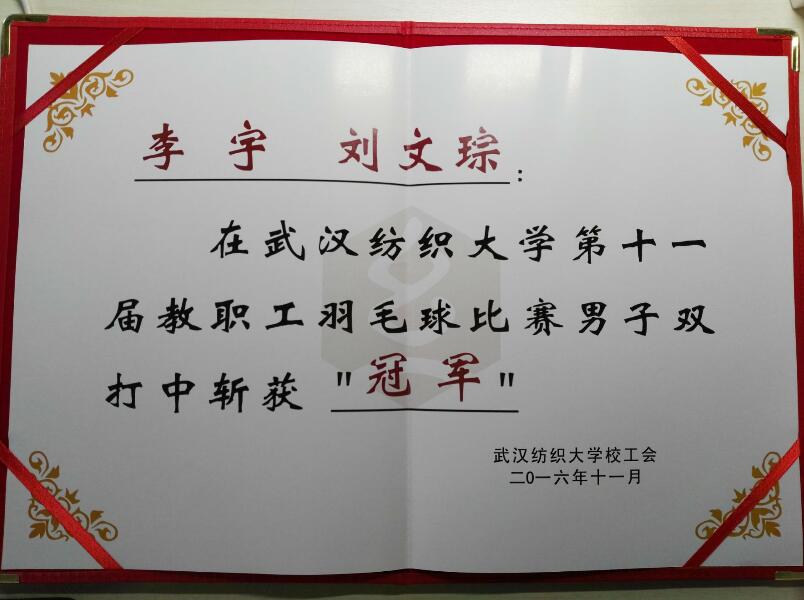 李宇 刘文琮：
在武汉纺织大学第十一
届教职工羽毛球比赛男子双
打中斩获"冠军"
武汉纺织大学校工会
二0一六年十一月